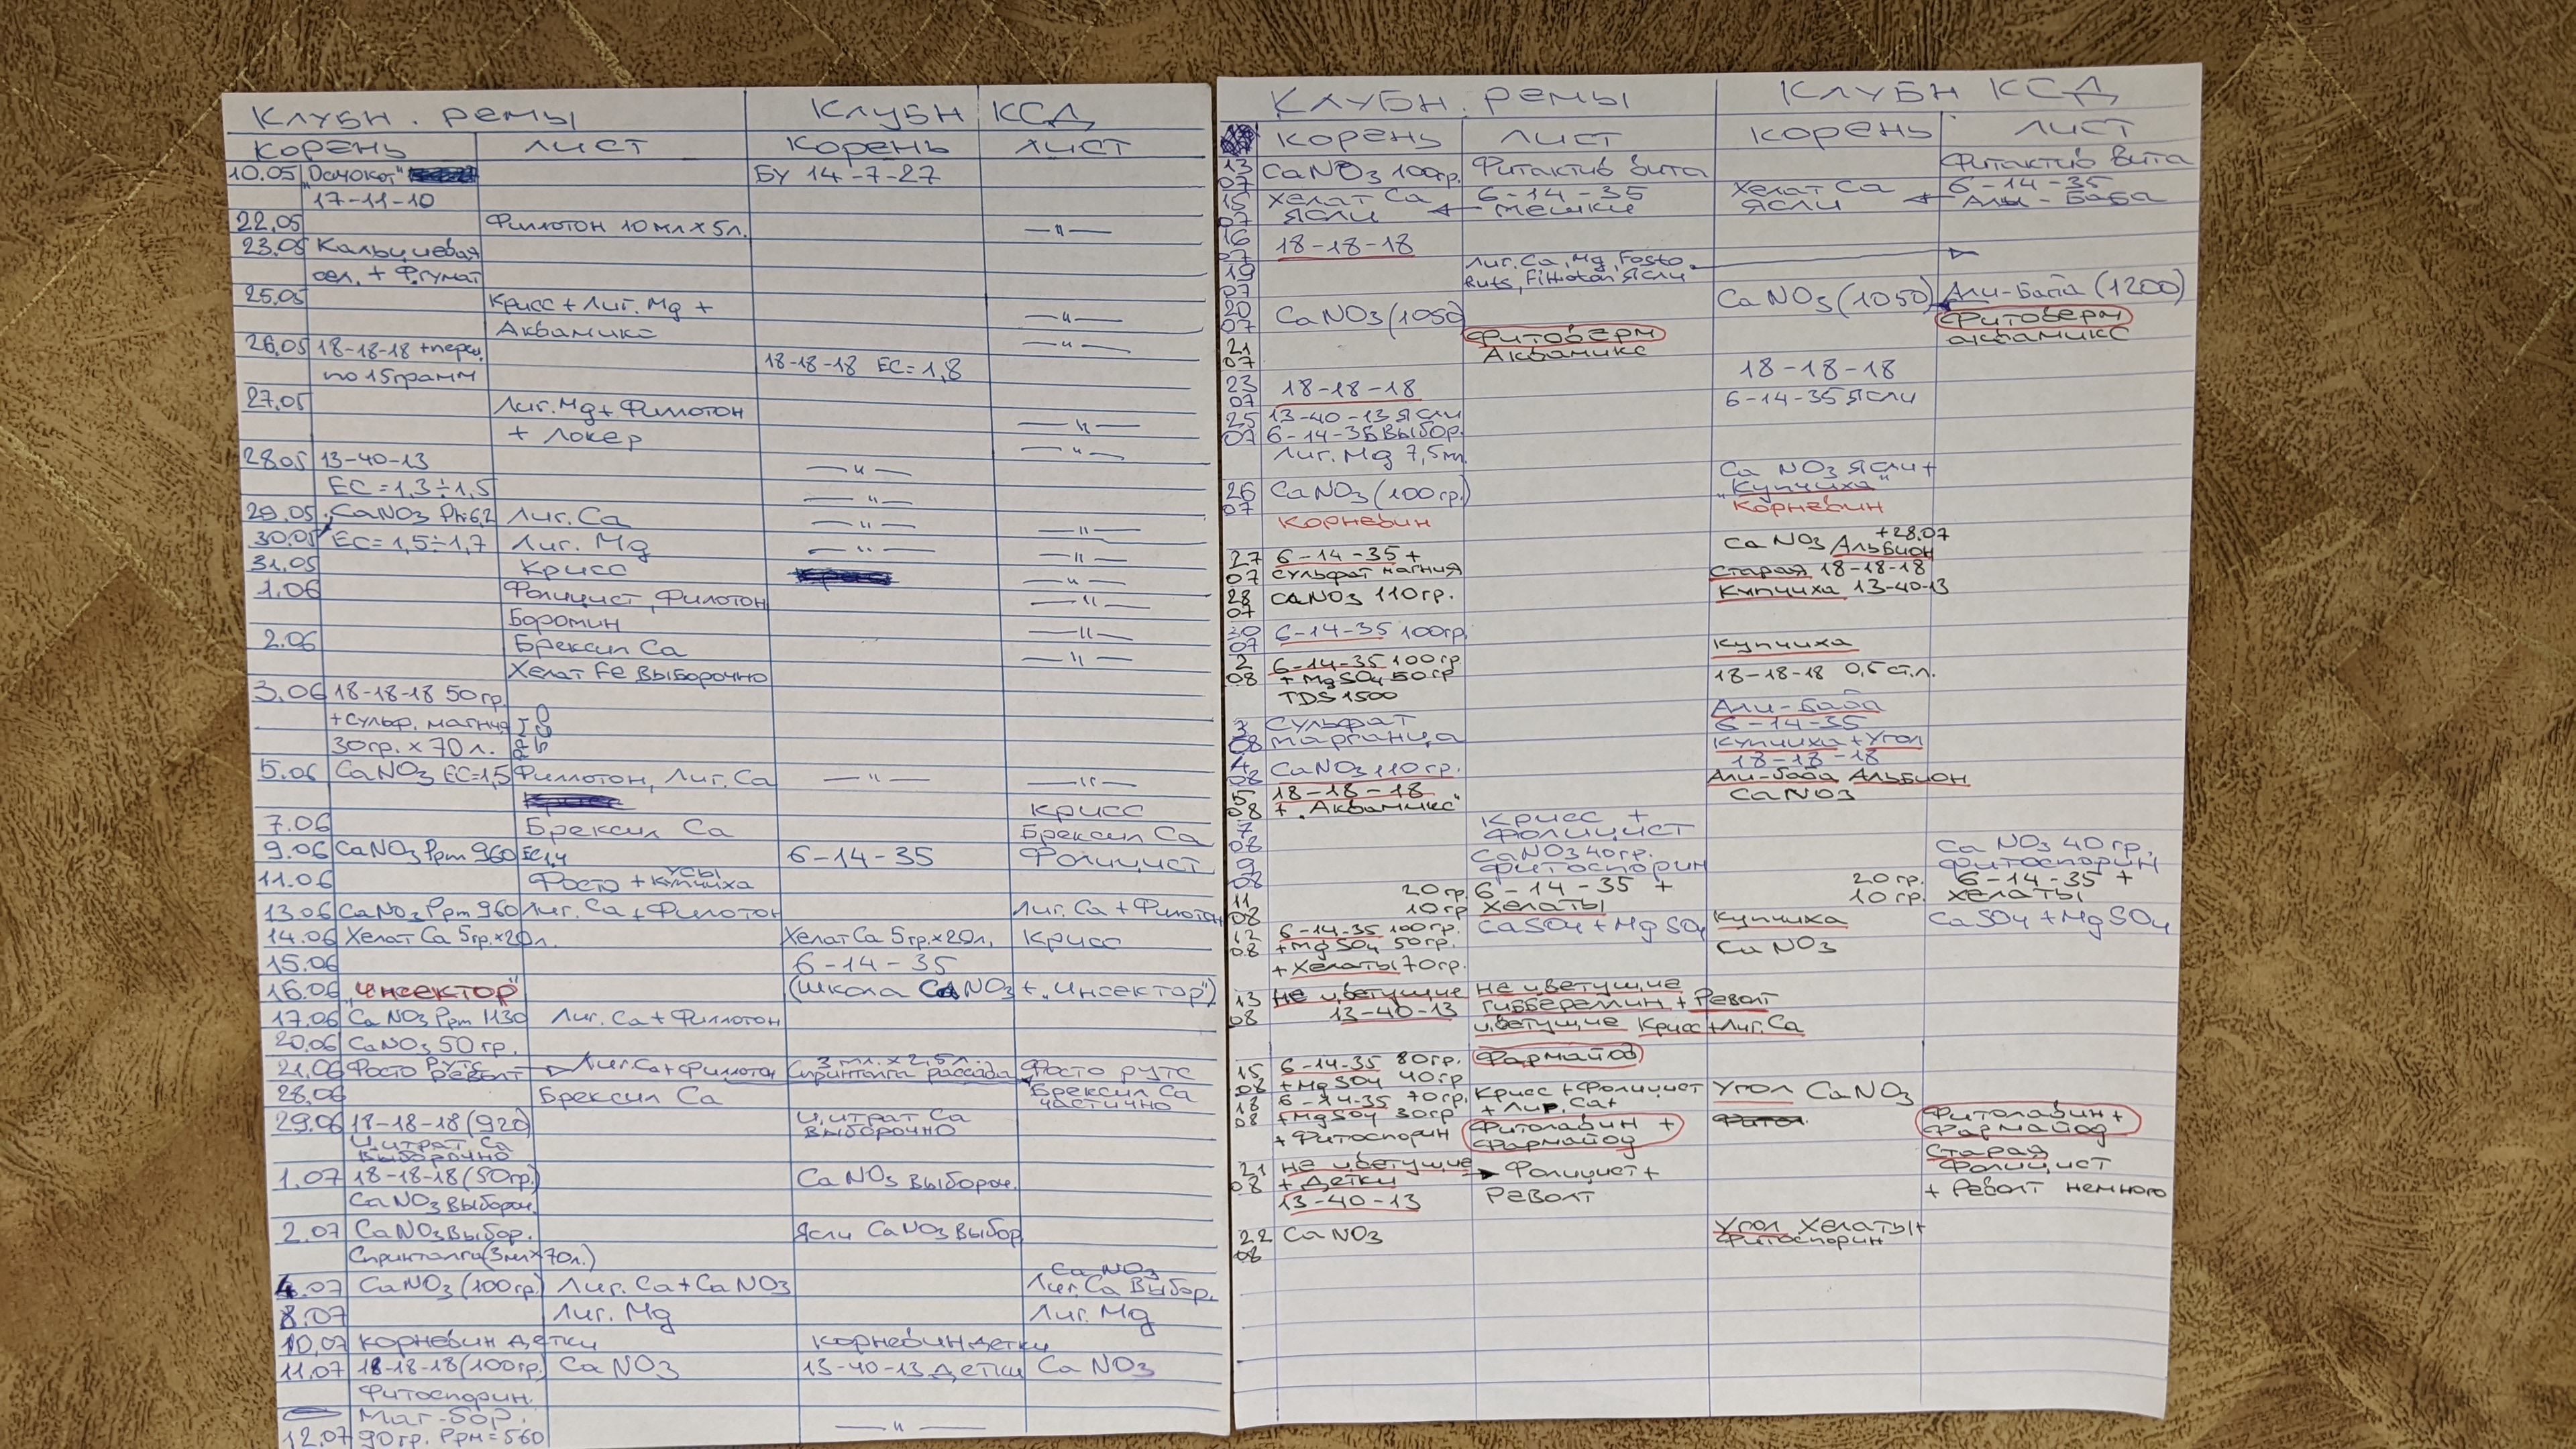 Клубн. ремы Клубн КСД
Корень лист Корень лист
10.05 БУ 14-7-27
17-11-10
22.05 Филлотон 10 мл x 5л. —"—
23.05 Кальциевая
сел. + Ф.гумат
25.05 Крисс + Лиг. Mg + —"—
Аквамикс —"—
26.05 18-18-18 18-18-18 EC=1,8
по 15грамм
27.05 Лиг.Mg + Филлотон —"—
+ Локер —"—
28.05 13-40-13 —"—
EC=1,3÷1,5 —"—
29.05 CaNO3 Ph-6,2 Лиг. Ca —"— —"—
30.05 EC=1,5÷1,7 Лиг. Mg —"— —"—
31.05 Крисс —"—
1.06 Фолицист, Филотон —"—
Боромин —"—
2.06 Брексил Ca —"—
Хелат Fe выборочно
3.06 18-18-18 50гр.
+сульф. магния
30гр. x 70 л.
5.06 CaNO3 EC=1,5 Филлотон, Лиг. Ca —"— —"—
Крисс
7.06 Брексил Ca Брексил Ca
9.06 CaNO3 Ppm 960 EC1,4 6-14-35 Фолицист
усы
11.06 Фосто + купчиха
13.06 CaNO3 Ppm 960 Лиг. Ca + Филотон Лиг. Ca + Филотон
14.06 Хелат Ca 5гр.x20л. Хелат Ca 5гр.x20л. Крисс
15.06 6-14-35
16.06 "Инсектор" (школа CaNO3 + "Инсектор")
17.06 CaNO3 Ppm 1130 Лиг. Ca + Филлотон
20.06 CaNO3 50гр.
21.06 Фосто Рутс Револт Лиг.Ca + Филлотон 3 мл. x 2,5л. Спринталга рассада Фосто рутс
28.06 Брексил Ca Брексил Ca
частично
29.06 18-18-18 (920) Цитрат Ca
Цитрат Ca выборочно
выборочно
1.07 18-18-18 (50гр.) CaNO3 выбороч.
CaNO3 выбороч.
2.07 CaNO3 выбор. Ясли CaNO3 выбор
Спринталга (3мл x 70л.)
CaNO3
4.07 CaNO3 (100гр) Лиг. Ca + CaNO3 Лиг. Ca Выбор.
8.07 Лиг. Mg Лиг. Mg
10.07 Корневин детки Корневин детки
11.07 18-18-18 (100гр.) CaNO3 13-40-13 детки CaNO3
Фитоспорин.
Маг-бор. —"—
12.07 90гр. Ppm=560
Клубн. ремы Клубн КСД
Корень лист Корень лист
13 07 CaNO3 100гр. Фитактив вита Фитактив вита
15 07 Хелат Ca 6-14-35 Хелат Ca 6-14-35
Ясли мешки Ясли Алы-Баба
16 07 18-18-18
19 07 Лиг. Ca, Mg, Fosto
Ruts, Filloton Ясли
20 07 CaNO3 (1050) CaNO3 (1050) Али-Баба (1200)
21 07 Фитоверм Фитоверм
Аквамикс аквамикс
23 07 18-18-18 18-18-18
25 07 13-40-13 Ясли 6-14-35 Ясли
6-14-35 Выбор.
Лиг. Mg 7,5мл.
26 07 CaNO3 (100гр.) CaNO3 Ясли +
"Купчиха"
Корневин Корневин
+28.07
27 07 6-14-35 + CaNO3 Альбион
сульфат магния Старая 18-18-18
28 07 CaNO3 110гр. Купчиха 13-40-13
30 07 6-14-35 100гр. Купчиха
2 08 6-14-35 100гр 18-18-18 0,5 ст.л.
+ MgSO4 50гр
TDS 1500
3 08 Сульфат Али-баба
марганца 6-14-35
Купчиха + Угол
4 08 CaNO3 110гр. 18-18-18
5 08 18-18-18 Али-баба Альбион
+ "Аквамикс" CaNO3
7 08 Крисс +
Фолицист
9 08 CaNO3 40гр. CaNO3 40гр.
Фитоспорин Фитоспорин
11 08 20гр 6-14-35 + 20гр. 6-14-35 +
10гр Хелаты 10гр. Хелаты
12 08 6-14-35 100гр. CaSO4 + MgSO4 Купчиха CaSO4 + MgSO4
+ MgSO4 50гр. CaNO3
+ Хелаты 70гр.
13 08 не цветущие не цветущие
13-40-13 Гиббереллин + Револт
цветущие Крисс + Лиг. Ca
15 08 6-14-35 80гр. Фармайод
+ MgSO4 40гр
18 08 6-14-35 70гр. Крисс + Фолицист Угол CaNO3
+ MgSO4 30гр + Лиг. Ca+
+ Фитоспорин Фитолавин + Фитолавин +
Фармайод Фармайод
21 08 не цветущие Фолицист + Старая
+ детки Револт Фолицист
13-40-13 + Револт немного
22 08 CaNO3 Угол Хелаты +
Фитоспорин